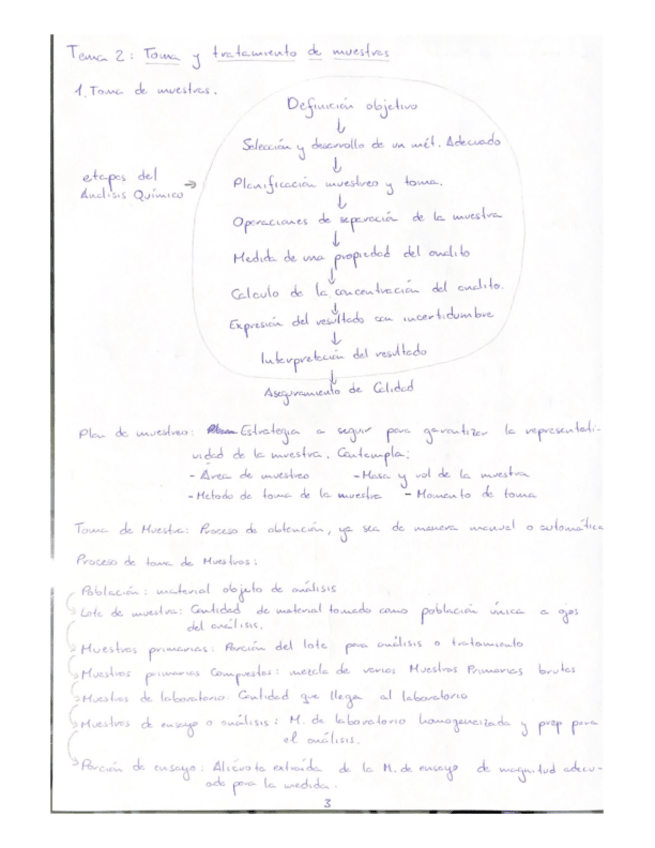 Tema 2: Toma y tratamiento de muestras
1. Toma de muestras.
Definición objetivo
↓
Selección y desarrollo de un mét. Adecuado
↓
etapas del
Análisis Químico →
Planificación muestreo y toma.
↓
Operaciones de separación de la muestra
↓
Medida de una propiedad del analito
↓
Calculo de la concentración del analito.
↓
Expresión del resultado con incertidumbre
↓
Interpretación del resultado
↓
Aseguramiento de Calidad
Plan de muestreo: Estrategia a seguir para garantizar la representati-
vidad de la muestra. Contempla:
- Área de muestreo - Masa y vol de la muestra
- Metodo de toma de la muestra - Momento de toma
Toma de Muestra: Proceso de obtención, ya sea de manera manual o automática
Proceso de toma de Muestras:
Población: material objeto de análisis
Lote de muestra: Cantidad de material tomado como población única a ojos
del análisis.
Muestras primarias: Porción del lote para análisis o tratamiento
Muestras primarias Compuestas: mezcla de varias Muestras Primarias brutas
Muestras de laboratorio: Cantidad que llega al laboratorio
Muestras de ensayo o análisis: M. de laboratorio homogeneizada y prep para
el análisis.
Porción de ensayo: Alícuota extraída de la M. de ensayo de magnitud adecu-
ada para la medida.
3